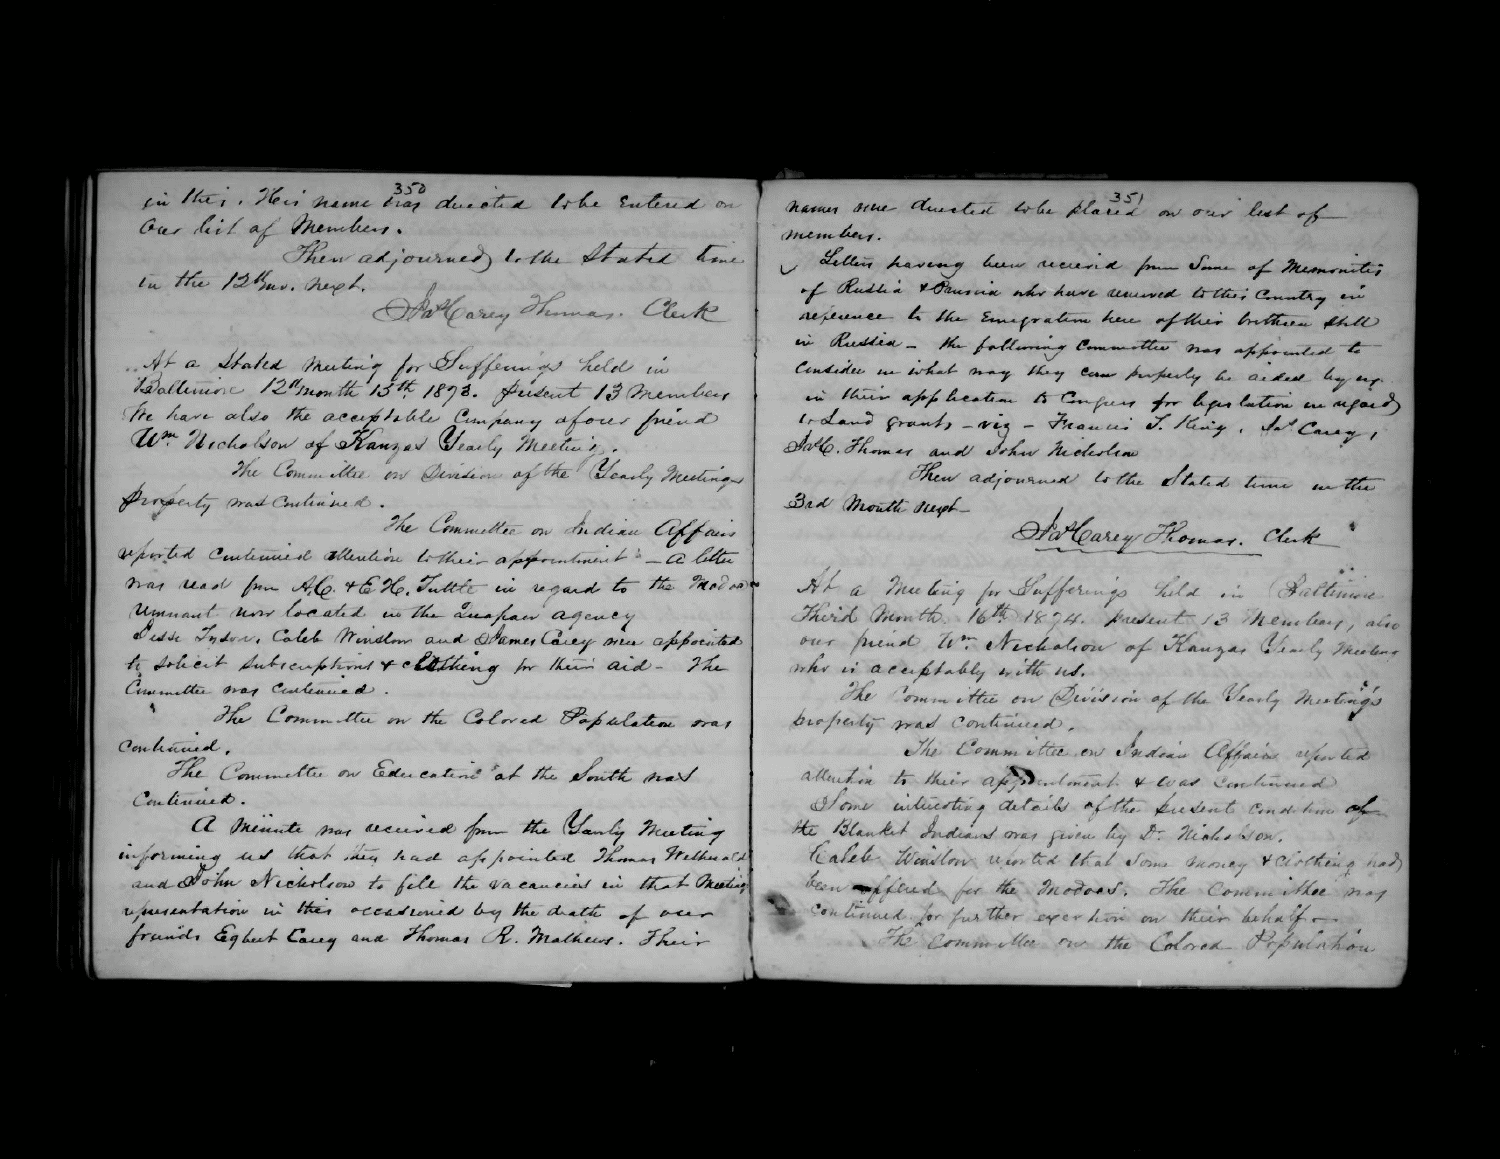 350
in this. His name was directed to be entered on
our list of Members.
Then adjourned to the Stated time
in the 12th mo. next.
Jas Carey Thomas. Clerk
At a Stated Meeting for Sufferings held in
Baltimore 12th month 15th 1873. present 13 Members
We have also the acceptable Company of our friend
Wm Nicholson of Kanzas Yearly Meeting.
The Committee on Division of the Yearly Meetings
property was continued.
The Committee on Indian Affairs
reported continued attention to their appointment - A letter
was read from A.C. & E H. Tuttle in regard to the Modoc
remnant now located in the Quapaw agency
Jesse Tyson, Caleb Winslow and James Carey were appointed
to solicit subscriptions & clothing for their aid - The
Committee was continued.
The Committee on the Colored Population was
continued.
The Committee on Education at the South was
continued.
A Minute was received from the Yearly Meeting
informing us that they had appointed Thomas Wetherald
and John Nicholson to fill the vacancies in that Meeting
representation in this occasioned by the death of our
friends Egbert Carey and Thomas R. Mathews. Their
351
names were directed to be placed on our list of
members.
Letters having been received from Some of Mennonites
of Russia & Prussia who have removed to this Country in
reference to the Emigration here of their brethren still
in Russia - the following Committee was appointed to
consider in what way they can properly be aided by us
in their application to Congress for legislation in regard
to Land grants - viz - Francis T. King, Jas Carey,
Jas C. Thomas and John Nicholson
Then adjourned to the Stated time in the
3rd Month next -
Jas Carey Thomas. Clerk
At a Meeting for Sufferings held in Baltimore
Third Month 16th 1874. present 13 Members, also
our friend Wm. Nicholson of Kanzas Yearly Meeting
who is acceptably with us.
The Committee on Division of the Yearly Meeting's
property was continued.
The Committee on Indian Affairs reported
attention to their appointment & was continued
Some interesting details of the present condition of
the Blanket Indians was given by Dr. Nicholson.
Caleb Winslow reported that some money & clothing had
been offered for the Modocs. The Committee was
continued for further exertion on their behalf -
The Committee on the Colored Population